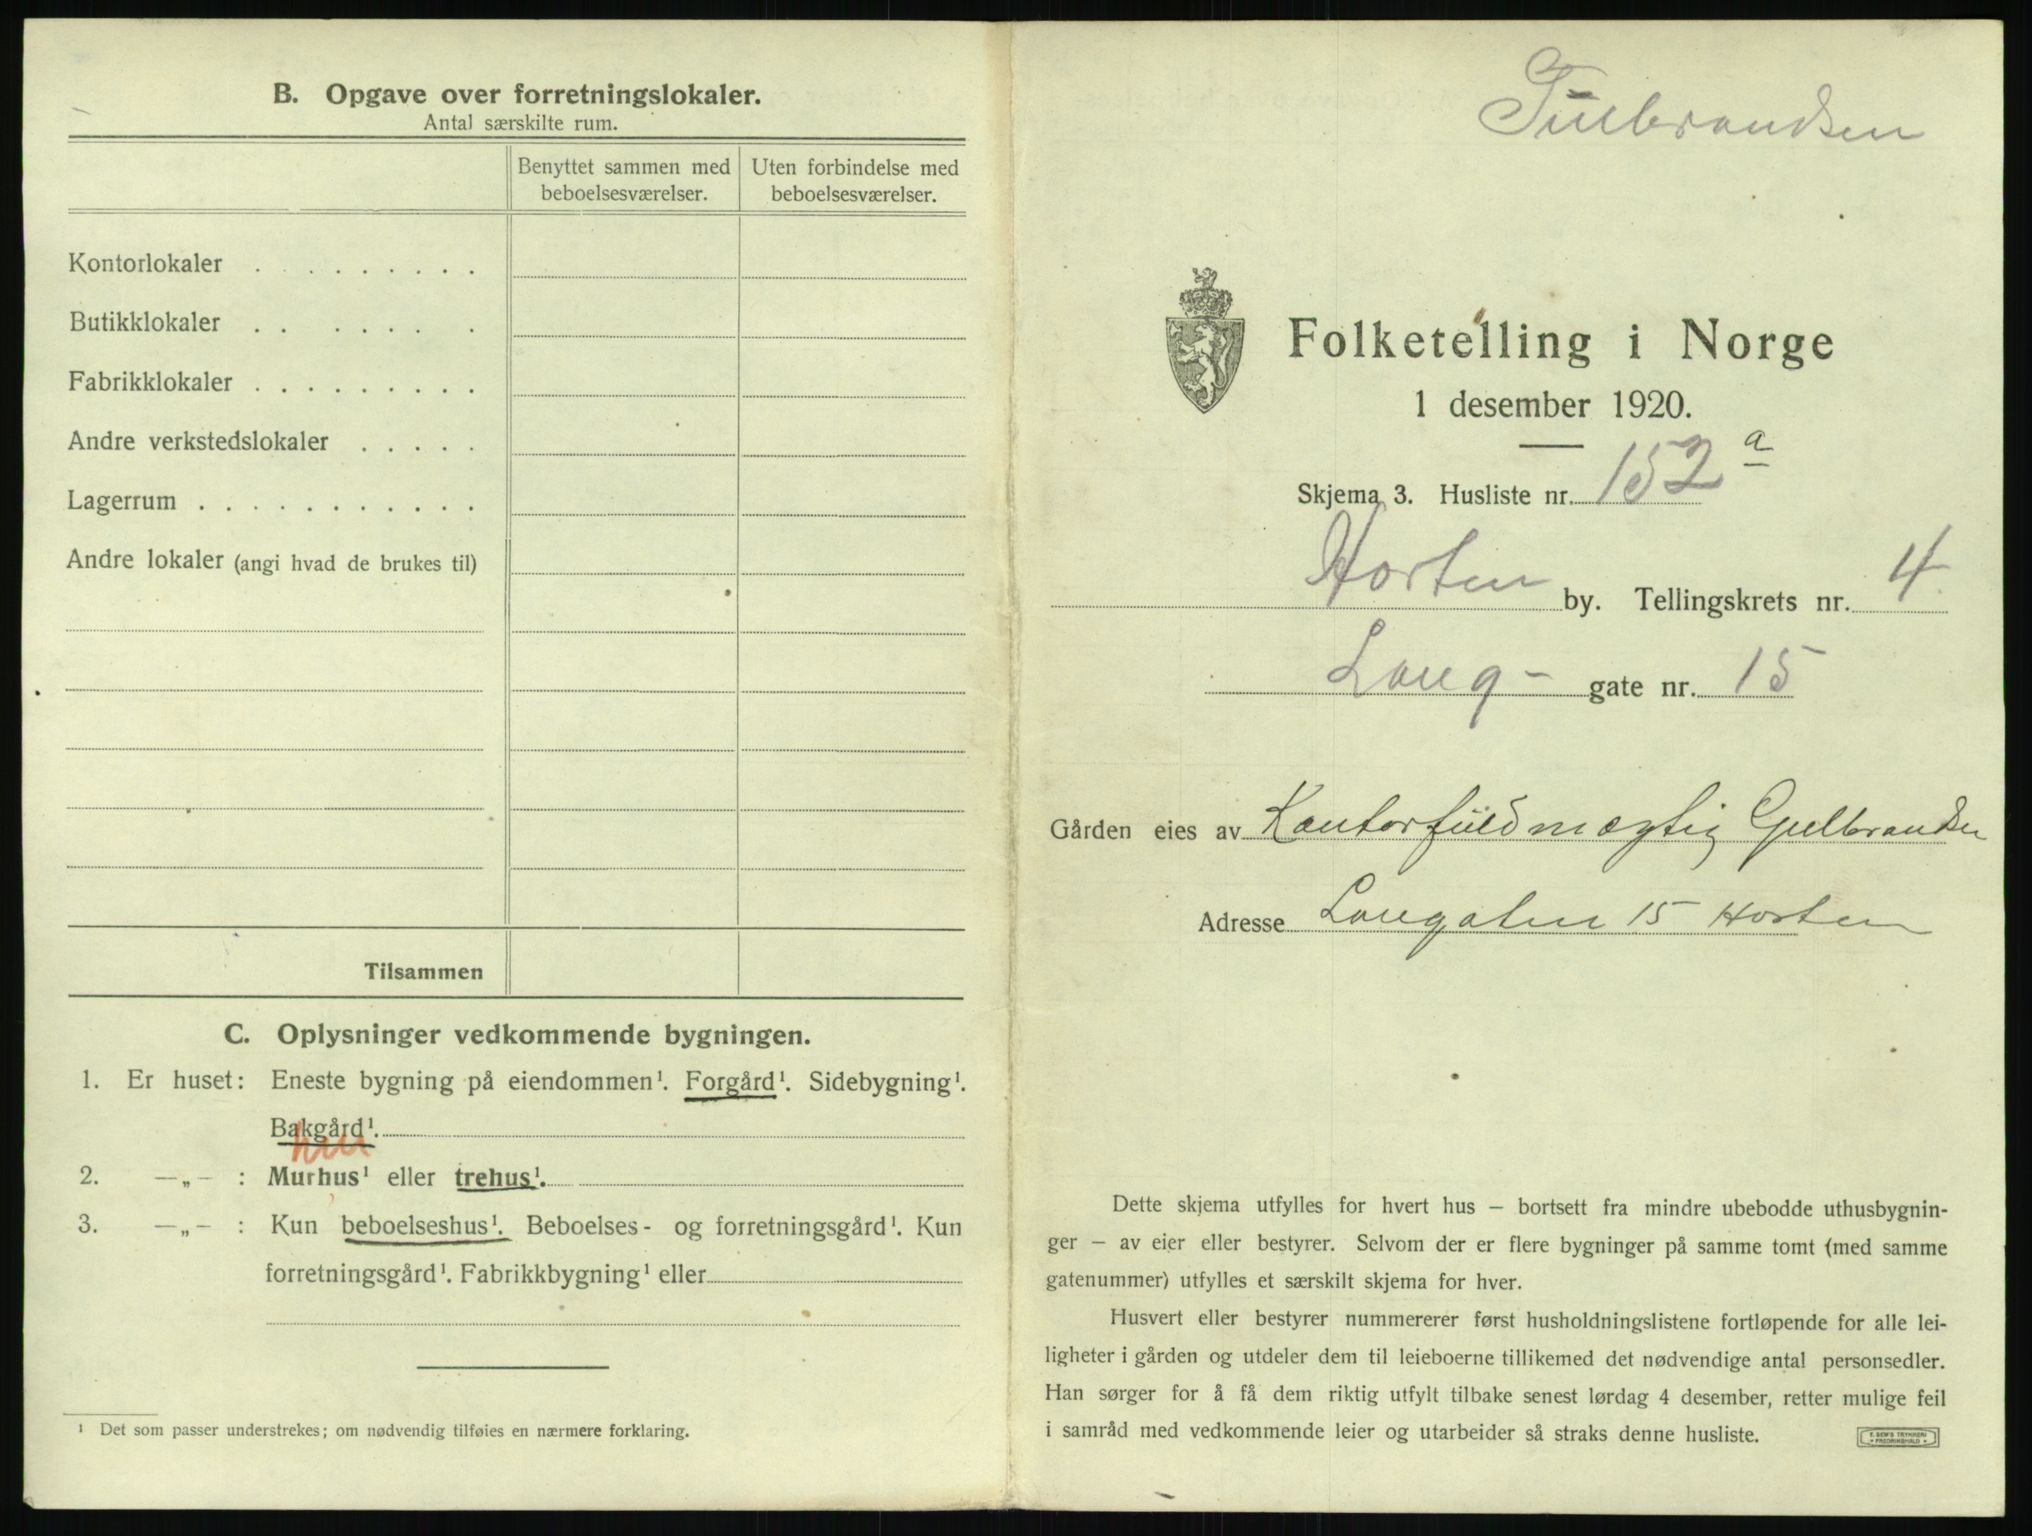 B. Opgave over forretningslokaler.
Antal særskilte rum.
Benyttet sammen med beboelsesværelser.
Uten forbindelse med beboelsesværelser.
Kontorlokaler . . . . . . . . .
Butikklokaler . . . . . . .
Fabrikklokaler . . . . . . . . .
Andre verkstedslokaler . . . . .
Lagerrum . . . . . . . . . . .
Andre lokaler (angi hvad de brukes til)
Tilsammen
C. Oplysninger vedkommende bygningen.
1. Er huset: Eneste bygning på eiendommen¹. Forgård¹. Sidebygning¹.
Bakgård¹.
2. —„— : Murhus¹ eller trehus¹.
3. —„— : Kun beboelseshus¹. Beboelses- og forretningsgård¹. Kun
forretningsgård¹. Fabrikkbygning¹ eller
¹ Det som passer understrekes; om nødvendig tilføies en nærmere forklaring.
Gulbrandsen
Folketelling i Norge
1 desember 1920.
Skjema 3. Husliste nr. 152 a
Horten by. Tellingskrets nr. 4
Lang- gate nr. 15
Gården eies av Kontorfuldmægtig Gulbrandsen
Adresse Langaten 15 Horten
Dette skjema utfylles for hvert hus – bortsett fra mindre ubebodde uthusbygnin-
ger – av eier eller bestyrer. Selvom der er flere bygninger på samme tomt (med samme
gatenummer) utfylles et særskilt skjema for hver.
Husvert eller bestyrer nummererer først husholdningslistene fortløpende for alle lei-
ligheter i gården og utdeler dem til leieboerne tillikemed det nødvendige antal personsedler.
Han sørger for å få dem riktig utfylt tilbake senest lørdag 4 desember, retter mulige feil
i samråd med vedkommende leier og utarbeider så straks denne husliste.
E. SEM'S TRYKKERI
FREDRIKSHALD